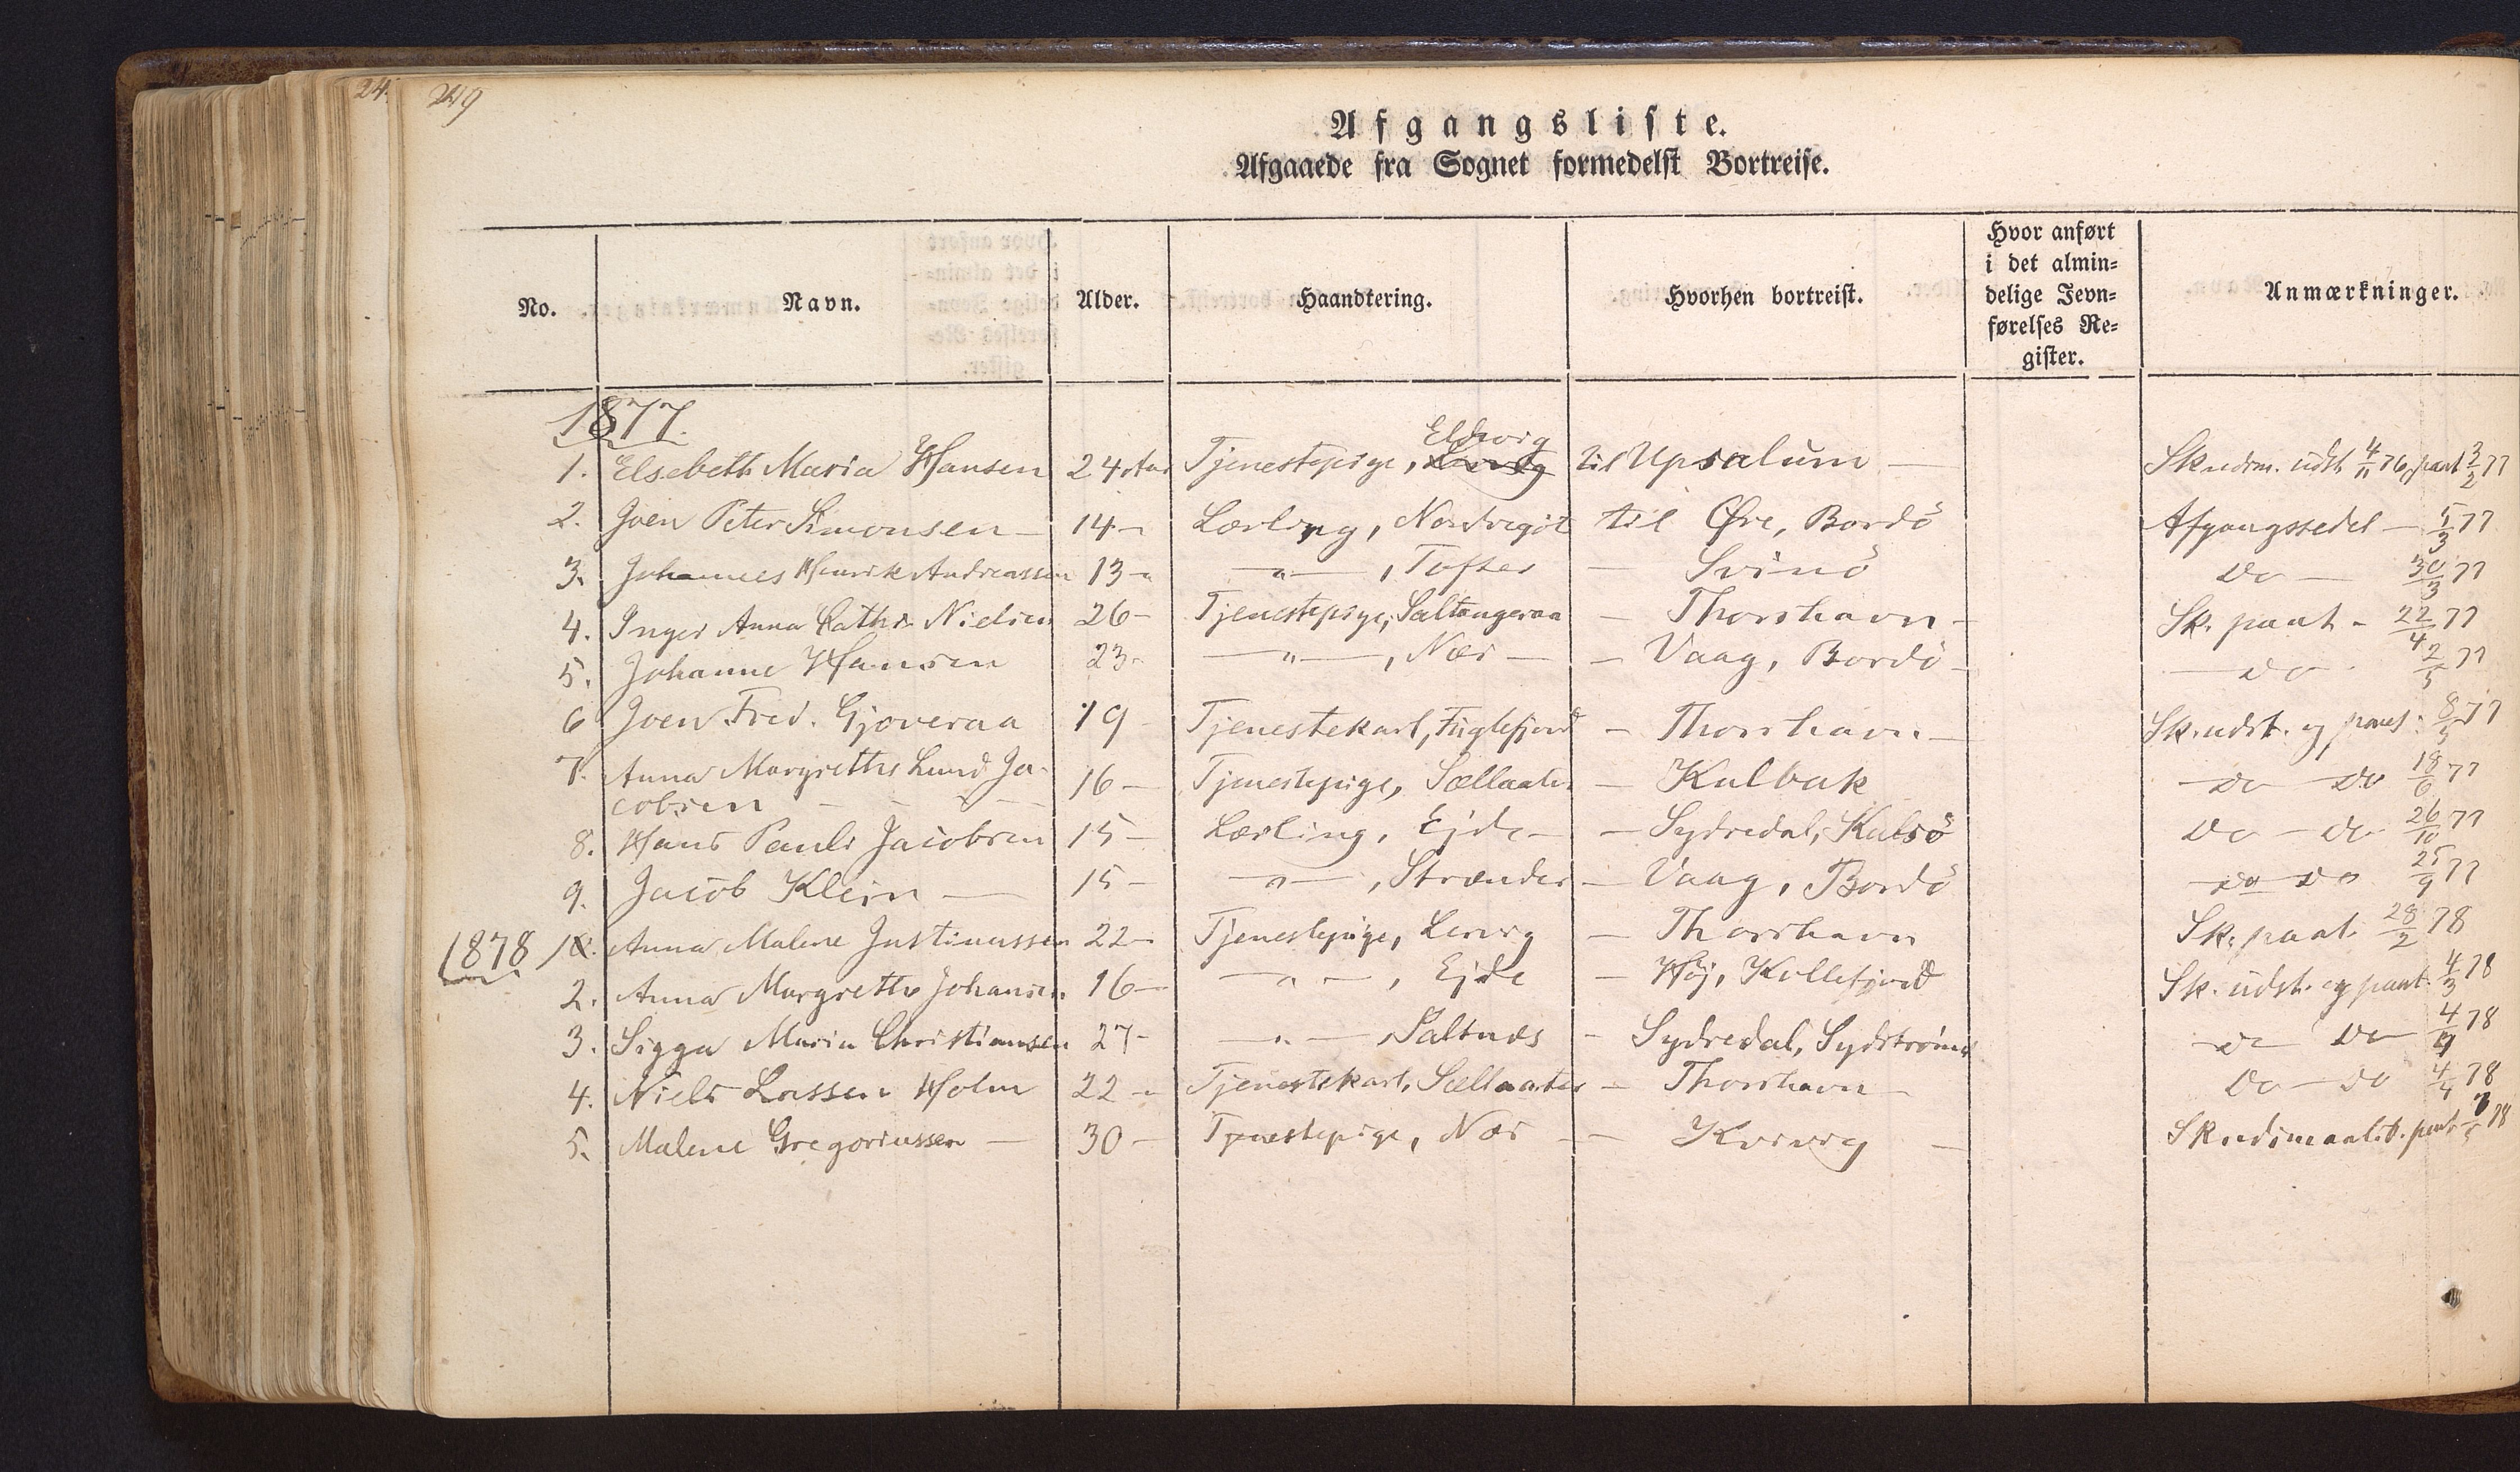 249
Afgangsliste.
Afgaaede fra Sognet formedelst Bortreise.
No. Navn. Alder. Haandtering. Hvorhen bortreist. Hvor anført i det almin= delige Jevn= førelses Re= gister. Anmærkninger.
1877.
Eldevig
1. Elsebeth Maria Hansen 24 Aar Tjenestepige, til Upsalum — Skudsm. udst. 4/11 76, paat 3/2 77
2. Joen Peter Simonsen — 14 — Lærling, Nordregöt til Øre, Bordö Afgangssedel — 5/3 77
3. Johannes Henrik Andreassen 13 — " — " —, Tofter — Svinö do — 30/3 77
4. Inger Anna Cathr. Nielsen 26 — Tjenestepige, Saltangeraa — Thorshavn — Sk. paat. — 22/4 77
5. Johanne Hansen 23 — — " —, Næs — — Vaag, Bordö — — do — 2/5 77
6 Joen Fred. Gjoveraa 19 — Tjenestekarl, Fuglefjord — Thorshavn — Sk. udst. og paat. 8/5 77
7. Anna Margrethe Lund Ja-
cobsen — — — 16 — Tjenestepige, Sællaater — Kalbak — do — do 18/6 77
8. Hans Pauli Jacobsen 15 — Lærling, Ejde — — Sydredal, Kalsö do — do 26/10 77
9. Jacob Klein — 15 — — " —, Strænder — Vaag, Bordö do do 25/9 77
1878 1. Anna Malene Justinussen 22 — Tjenestepige, Lervig — Thorshavn Sk. paat. 28/2 78
2. Anna Margrethe Johansen 16 — — " —, Ejde — Höj, Kollefjord Sk. udst. og paat. 4/3 78
3. Sigga Maria Christiansen 27 — — " —, Saltnæs — Sydredal, Sydströmö do do 4/4 78
4. Niels Lassen Holm 22 — " Tjenestekarl, Sællaater — Thorshavn — do — do 4/4 78
5. Malene Gregoriussen — 30 — Tjenestepige, Næs — — Kvivig — Skudsmaalsb. paat. 78